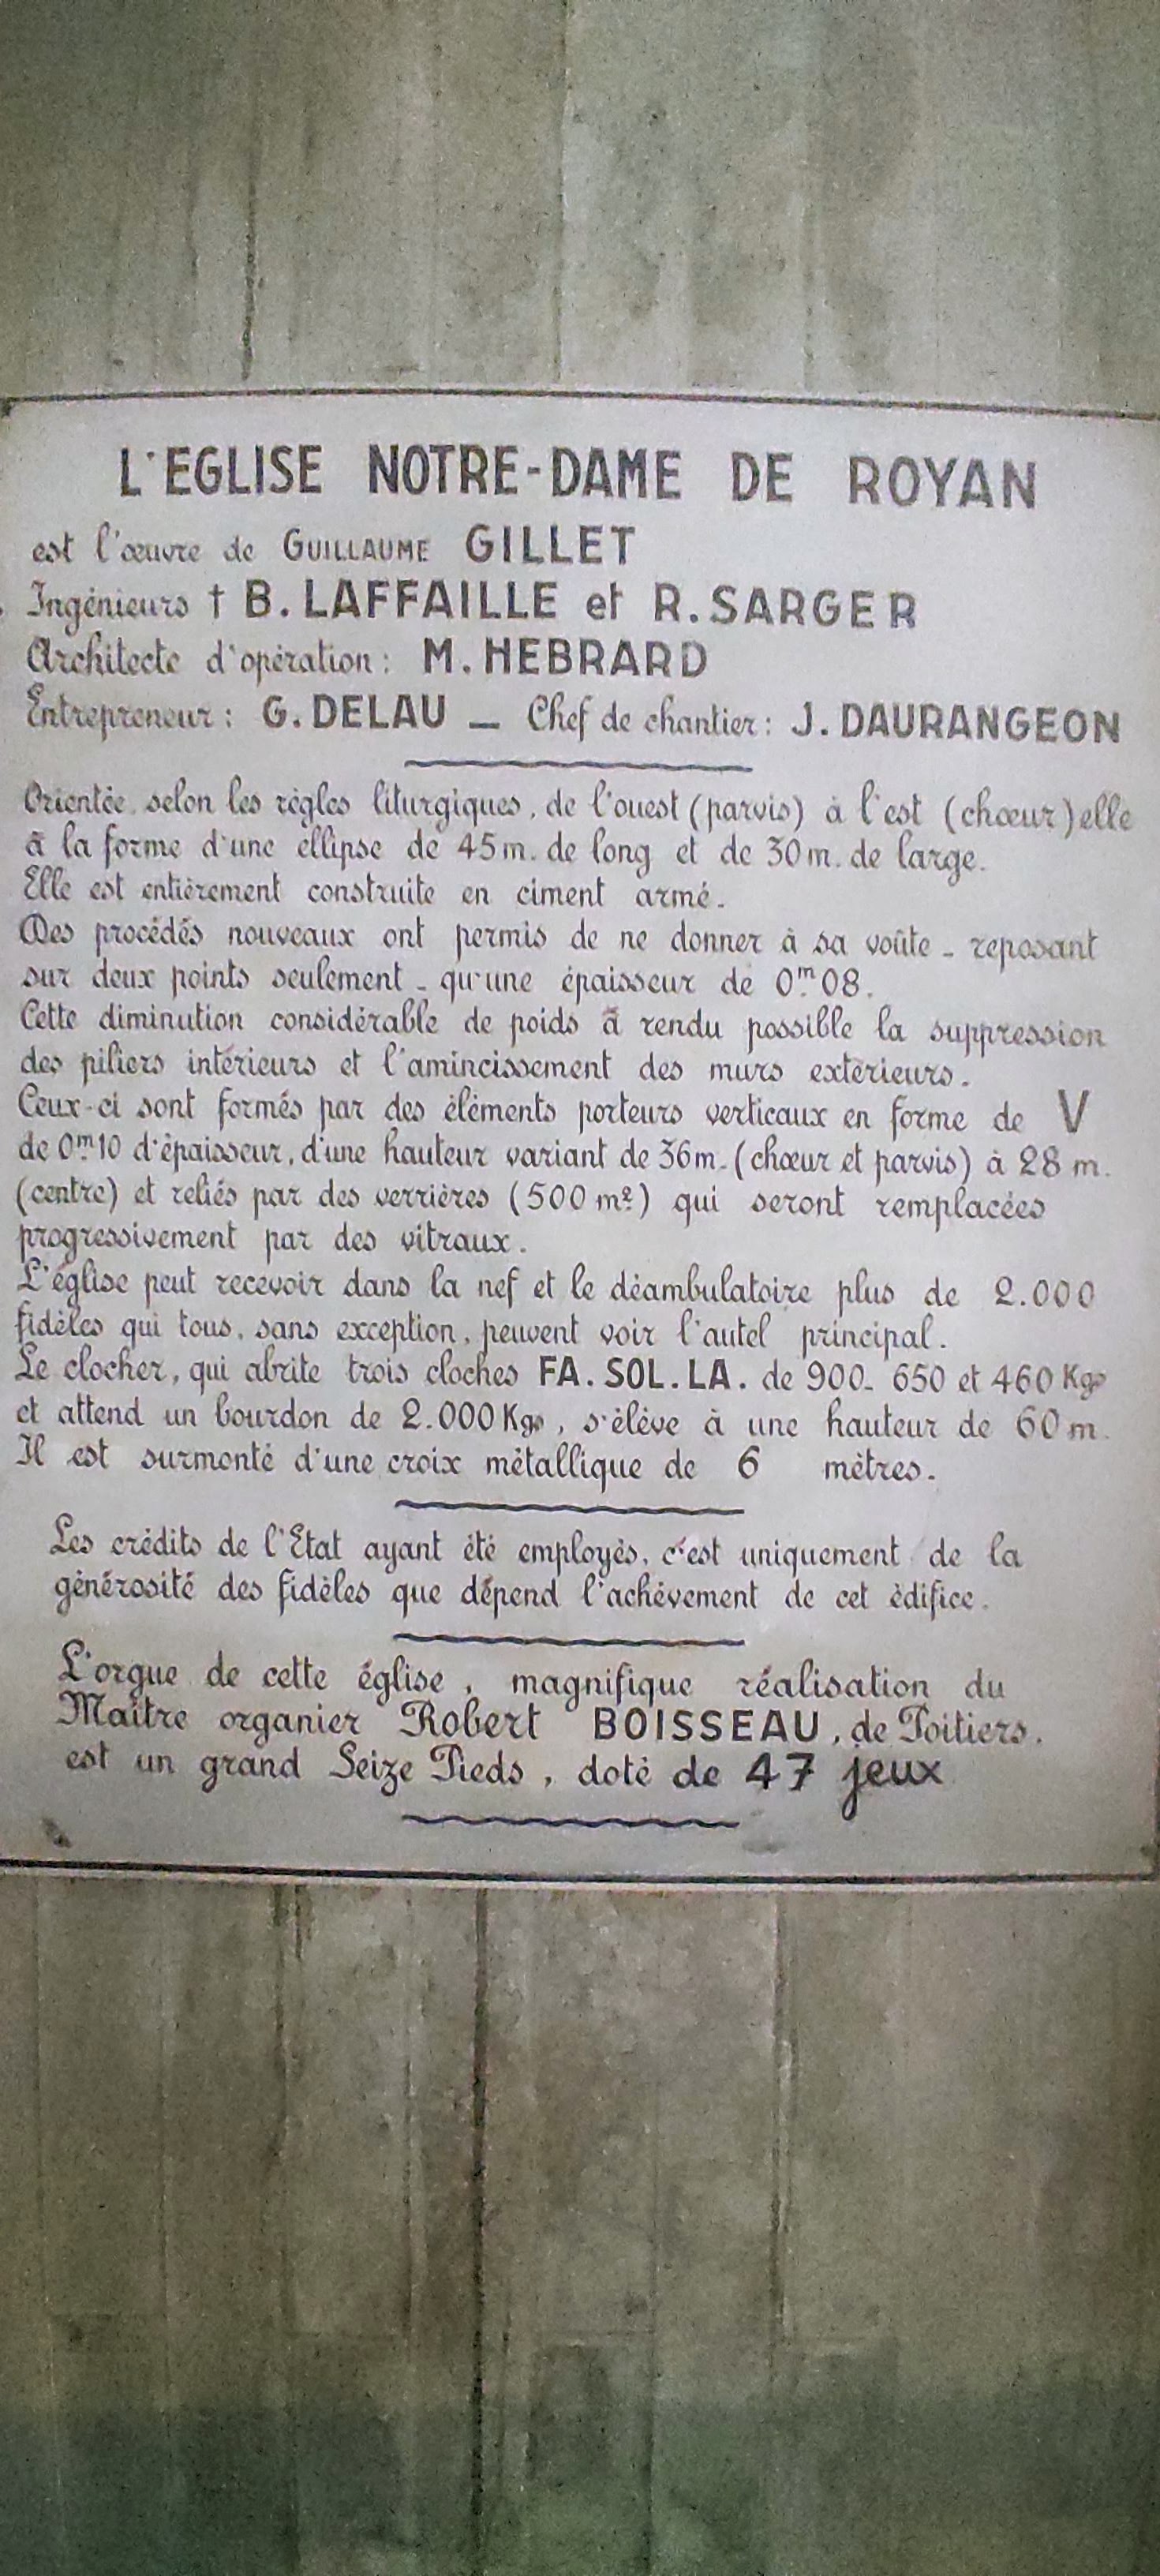 L'EGLISE NOTRE-DAME DE ROYAN
est l'œuvre de GUILLAUME GILLET
Ingénieurs † B. LAFFAILLE et R. SARGER
Architecte d'opération : M. HEBRARD
Entrepreneur : G. DELAU _ Chef de chantier : J. DAURANGEON
Orientée selon les règles liturgiques, de l'ouest (parvis) à l'est (chœur) elle
à la forme d'une ellipse de 45 m. de long et de 30 m. de large.
Elle est entièrement construite en ciment armé.
Des procédés nouveaux ont permis de ne donner à sa voûte - reposant
sur deux points seulement - qu'une épaisseur de 0m08.
Cette diminution considérable de poids à rendu possible la suppression
des piliers intérieurs et l'amincissement des murs extérieurs.
Ceux-ci sont formés par des éléments porteurs verticaux en forme de V
de 0m10 d'épaisseur, d'une hauteur variant de 36 m. (chœur et parvis) à 28 m.
(centre) et reliés par des verrières (500 m2) qui seront remplacées
progressivement par des vitraux.
L'église peut recevoir dans la nef et le déambulatoire plus de 2.000
fidèles qui tous, sans exception, peuvent voir l'autel principal.
Le clocher, qui abrite trois cloches FA. SOL. LA. de 900- 650 et 460 Kgs
et attend un bourdon de 2.000 Kgs, s'élève à une hauteur de 60 m.
Il est surmonté d'une croix métallique de 6 mètres.
Les crédits de l'Etat ayant été employés, c'est uniquement de la
générosité des fidèles que dépend l'achèvement de cet édifice.
L'orgue de cette église, magnifique réalisation du
Maître organier Robert BOISSEAU, de Poitiers.
est un grand Seize Pieds, doté de 47 jeux